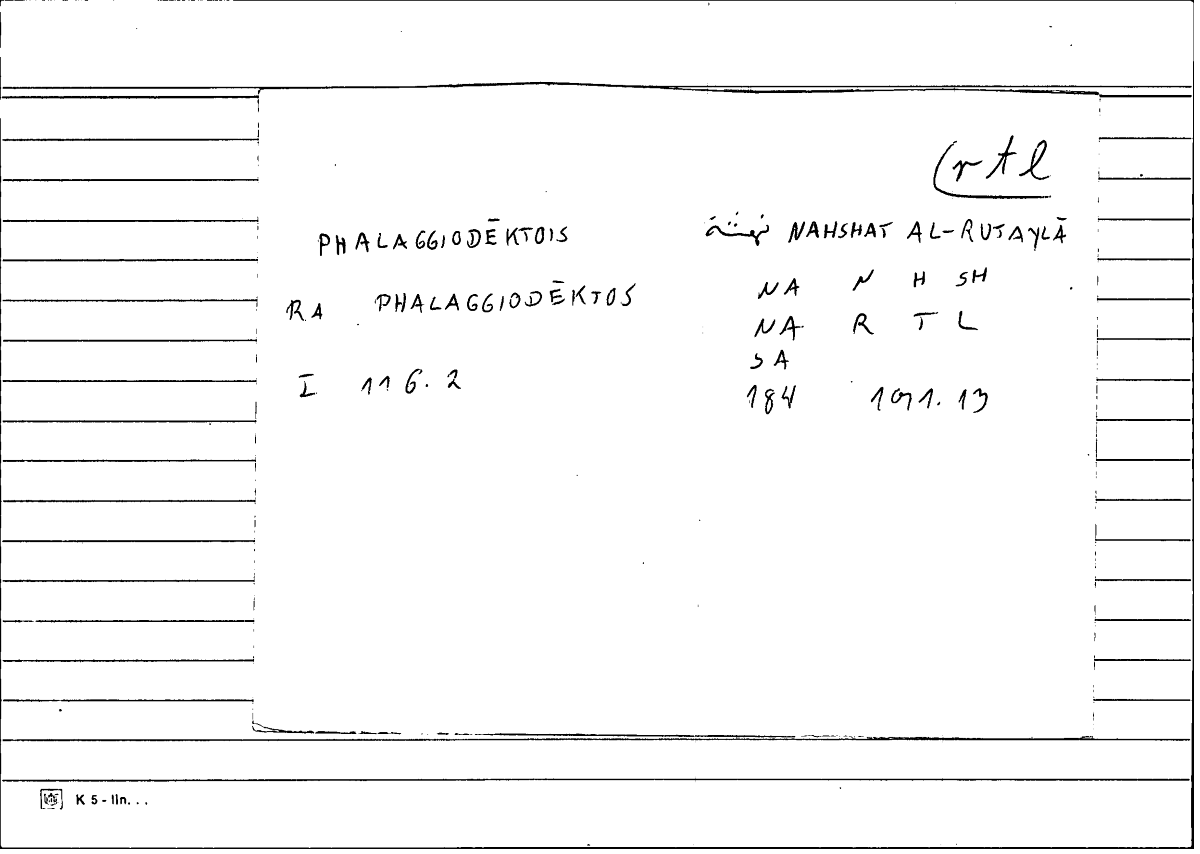 rtl
PHALAGGIODĒKTOIS نهشة NAHSHAT AL-RUTAYLĀ
NA N H SH
RA PHALAGGIODĒKTOS
NA R T L
SA
I 116.2 184 191.13
K 5 - lln. . .